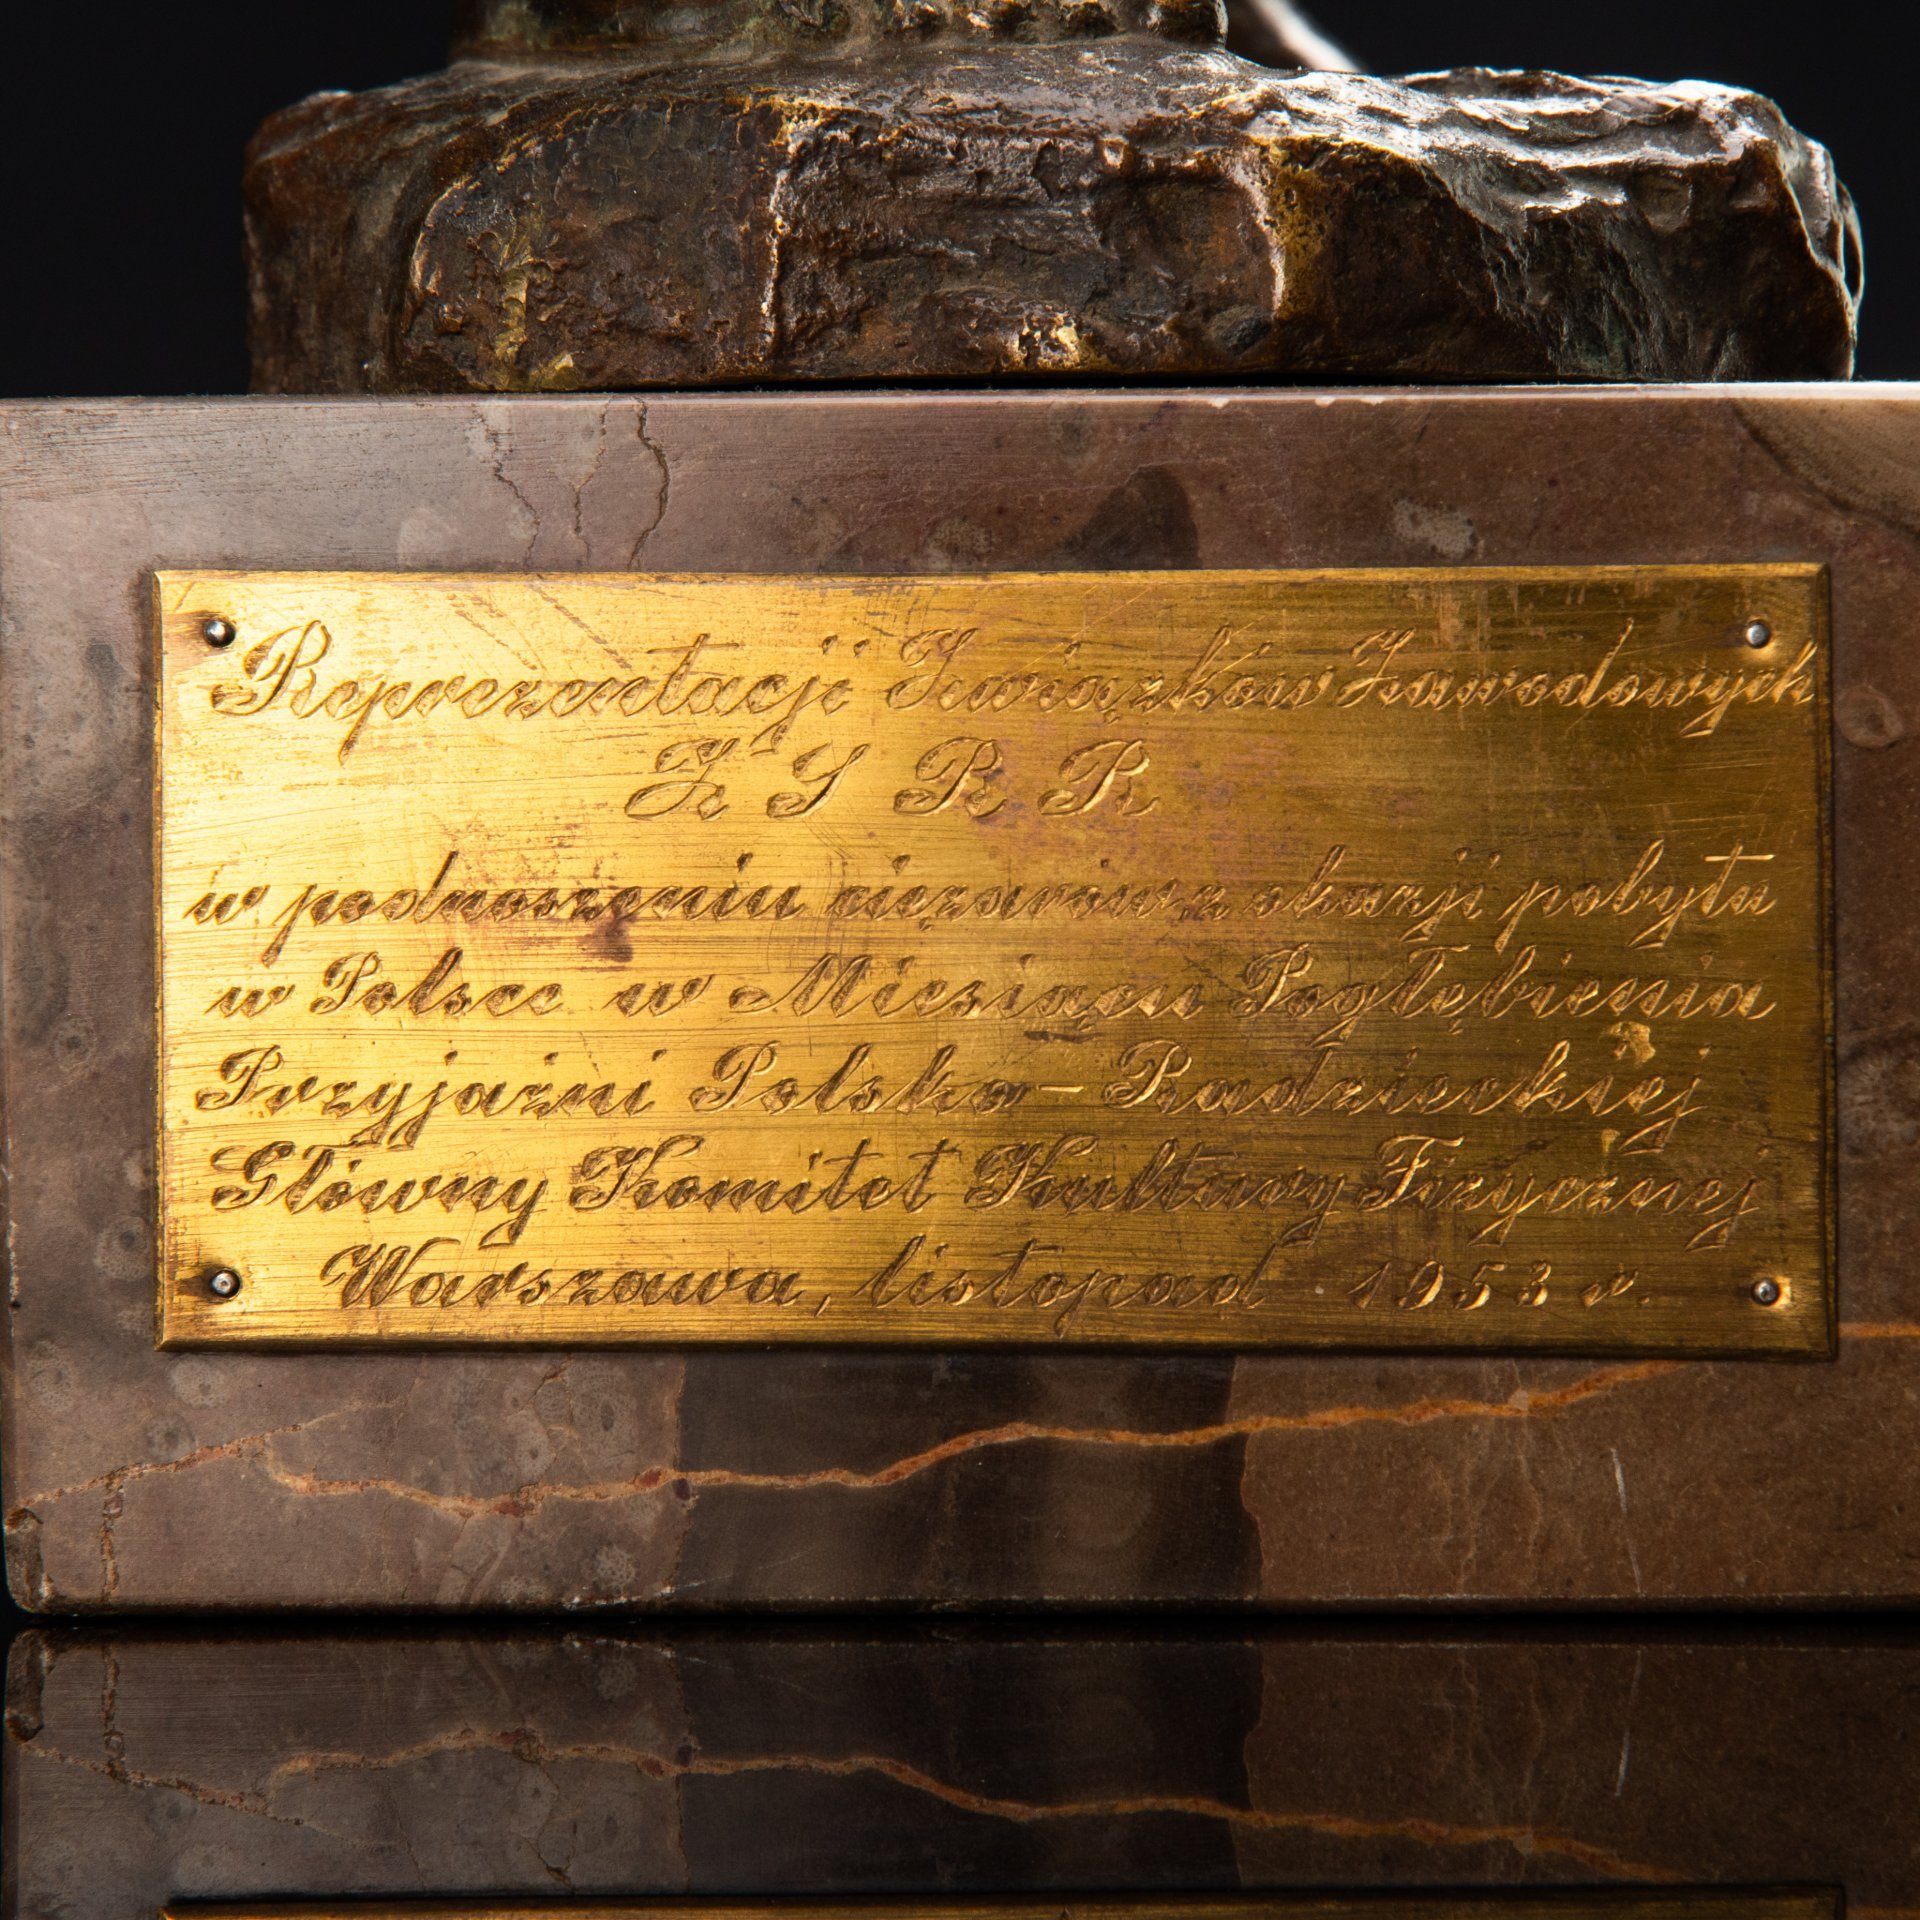 Reprezentacji Związków Zawodowych
Z S R R
w podnoszeniu ciężarów, z okazji pobytu
w Polsce w Miesiącu Pogłębienia
Przyjaźni Polsko - Radzieckiej
Główny Komitet Kultury Fizycznej
Warszawa, listopad 1953 r.